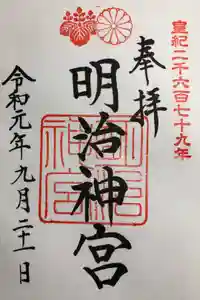 皇紀二千六百七十九年
奉拝
明治神宮
明治
神宮
令和元年九月二十一日